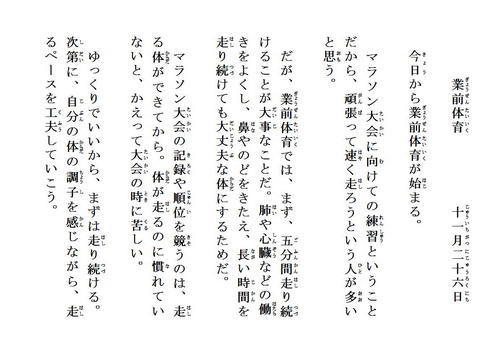 業前体育
十一月二十六日
今日から業前体育が始まる。
マラソン大会に向けての練習ということ
だから、頑張って速く走ろうという人が多い
と思う。
だが、業前体育では、まず、五分間走り続
けることが大事なことだ。肺や心臓などの働
きをよくし、鼻やのどをきたえ、長い時間を
走り続けても大丈夫な体にするためだ。
マラソン大会の記録や順位を競うのは、走
る体ができてから。体が走るのに慣れてい
ないと、かえって大会の時に苦しい。
ゆっくりでいいから、まずは走り続ける。
次第に、自分の体の調子を感じながら、走
るペースを工夫していこう。